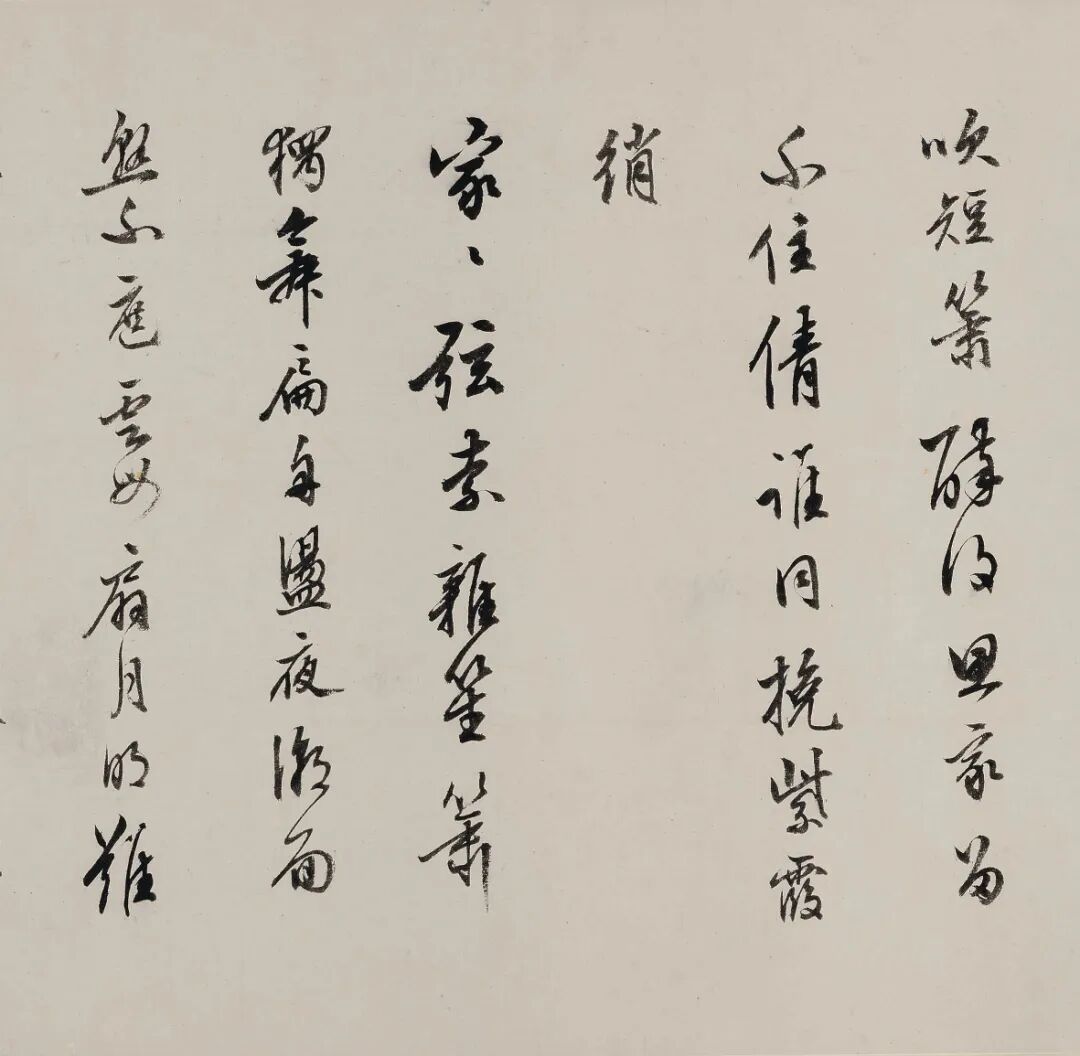 吹短簫醉後思家留
不住倩誰同挽紫霞
綃
家〻弦索雜笙簫
獨舞扁舟盪夜潮面
熱不庶雲母扇月明難